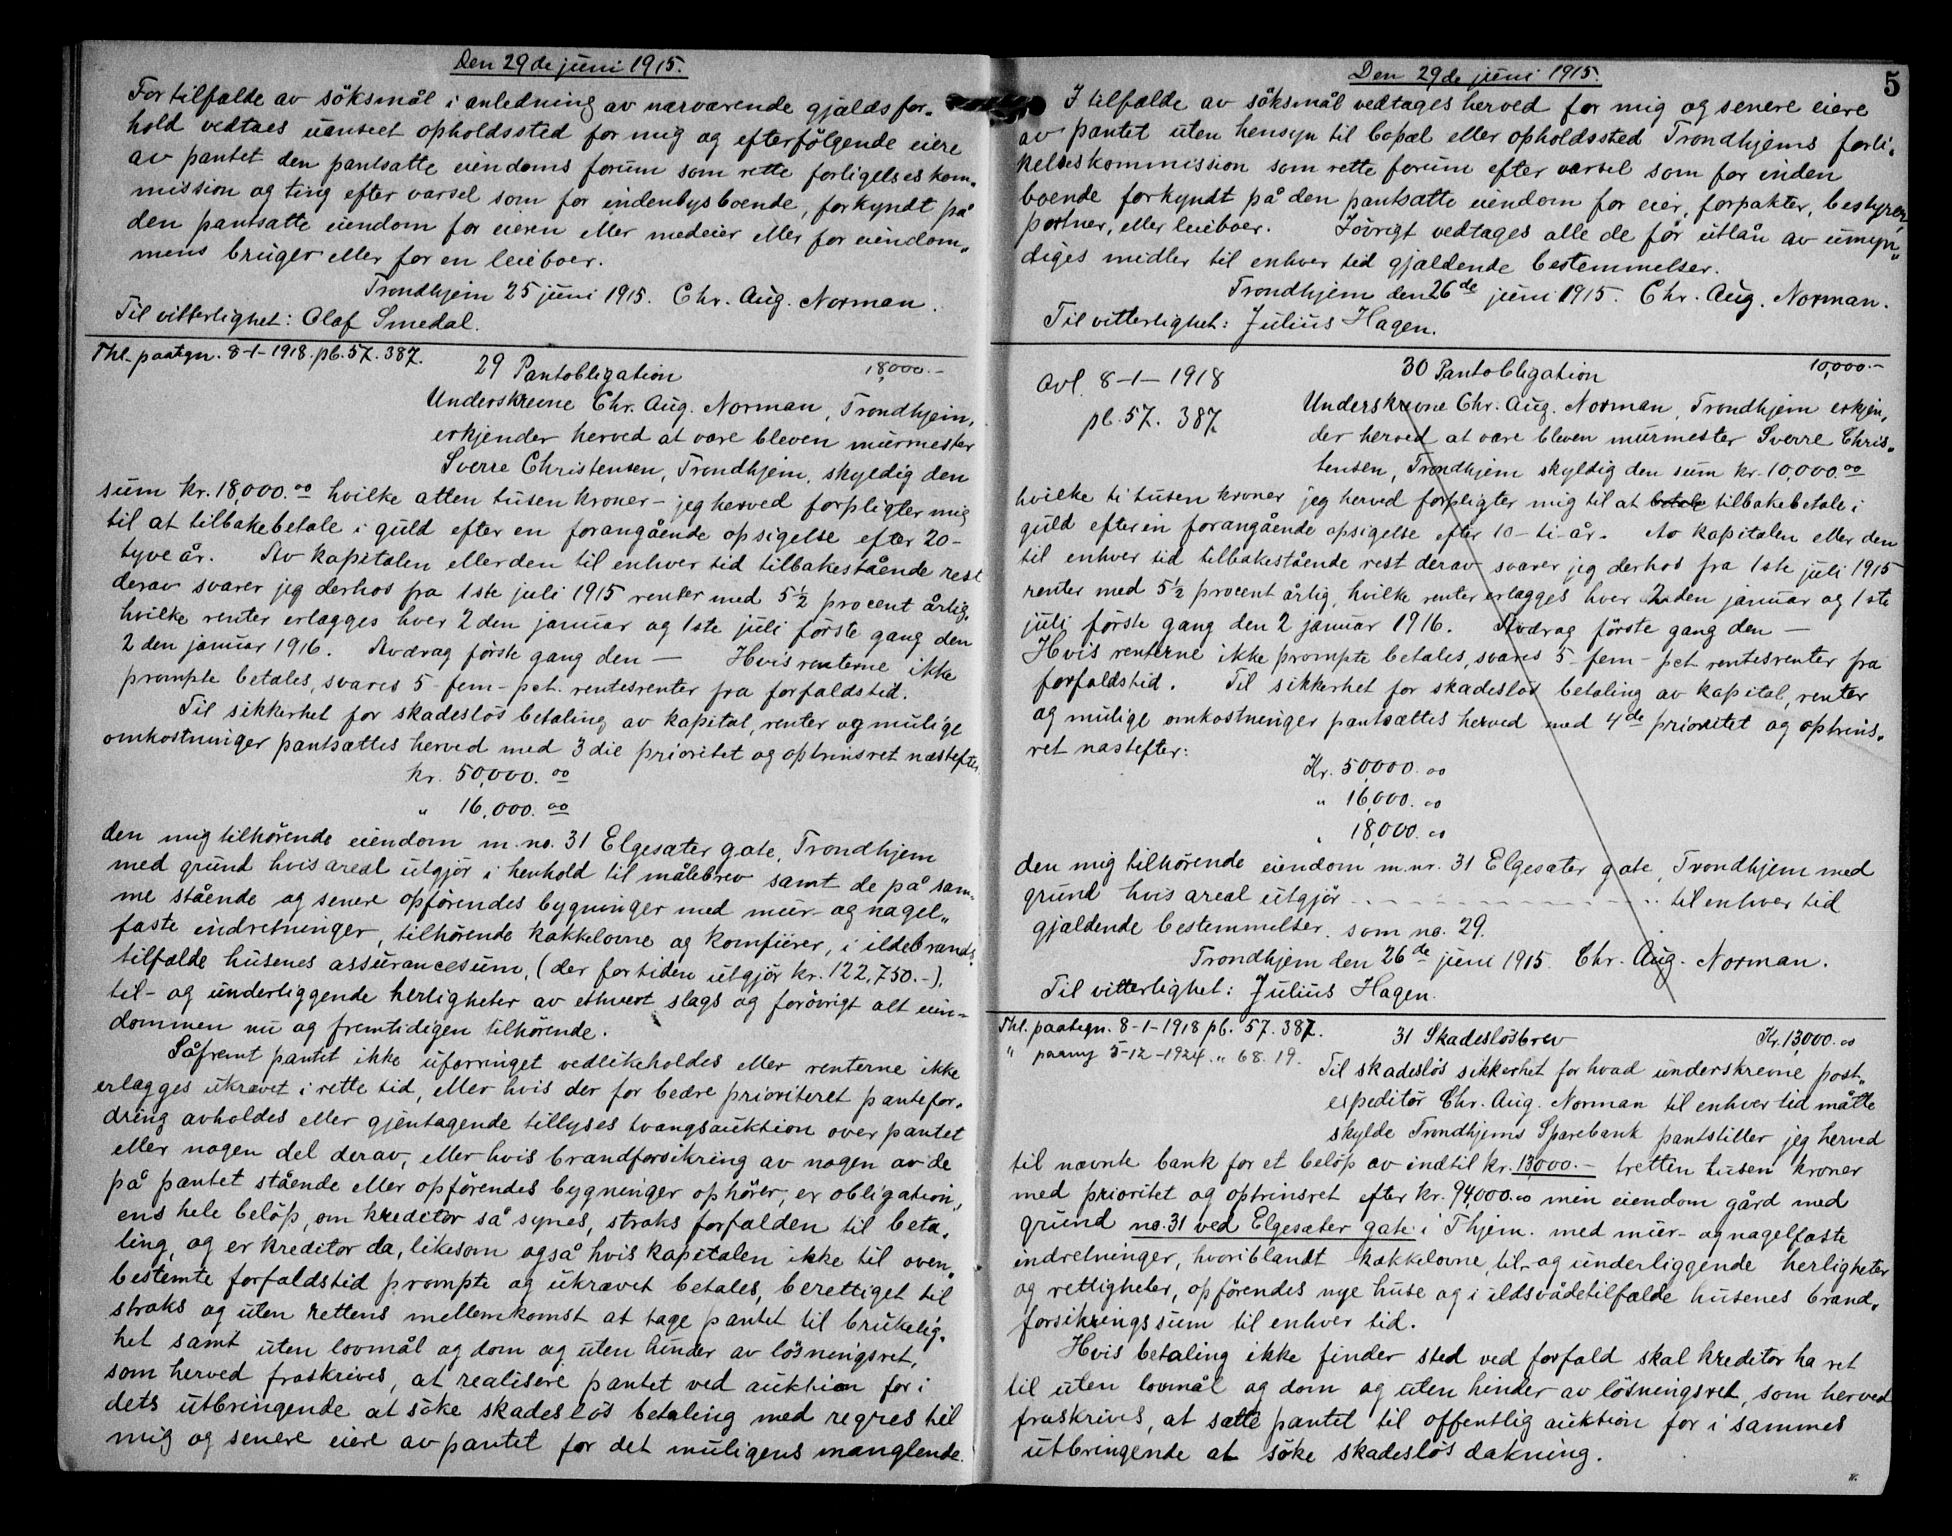 Den 29de juni 1915.
For tilfælde av söksmål i anledning av nærværende gjældsfor-
hold vedtaes uanseet opholdssted for mig og efterfölgende eiere
av pantet den pantsatte eiendoms forum som rette forligelseskom-
mission og ting efter varsel som for indenbysboende, forkyndt på
den pantsatte eiendom for eieren eller medeier eller for eiendom-
mens bruger eller for en leieboer.
Trondhjem 25 juni 1915. Chr. Aug. Norman.
Til vitterlighet: Olaf Smedal.
Thl. paategn. 8-1-1918. pb. 57. 387.
29 Pantobligation 18,000.-
Underskrevne Chr. Aug. Norman, Trondhjem,
erkjender herved at være bleven murmester
Sverre Christensen, Trondhjem, skyldig den
sum kr. 18,000.00 hvilke atten tusen kroner - jeg herved forpligter mig
til at tilbakebetale i guld efter en forangående opsigelse efter 20-
tyve år. Av kapitalen eller den til enhver tid tilbakestående rest
derav svarer jeg derhos fra 1ste juli 1915 renter med 5½ procent årlig,
hvilke renter erlægges hver 2den januar og 1ste juli förste gang den
2den januar 1916. Avdrag förste gang den — Hvis renterne ikke
prompte betales, svares 5-fem-pct. rentesrenter fra forfaldstid.
Til sikkerhet for skadeslös betaling av kapital, renter og mulige
omkostninger pantsættes herved med 3die prioritet og optrinsret næstefter
kr. 50,000.00
" 16,000.00
den mig tilhörende eiendom m. no. 31 Elgesæter gate, Trondhjem
med grund hvis areal utgjör i henhold til målebrev samt de på sam-
me stående og senere opförendes bygninger med mur- og nagel-
faste indretninger, tilhörende kakkelovne og komfurer, i ildebrands-
tilfælde husenes assurancesum, (der for tiden utgjör kr. 122,750.-),
til- og underliggende herligheter av ethvert slags og forövrigt alt eien-
dommen nu og fremtidigen tilhörende.
Såfremt pantet ikke uforringet vedlikeholdes eller renterne ikke
erlægges ukrævet i rette tid, eller hvis der for bedre prioriteret pantefor-
dring avholdes eller gjentagende tillyses tvangsauktion over pantet
eller nogen del derav, eller hvis brandforsikring av nogen av de
på pantet stående eller opförendes bygninger ophörer, er obligation-
ens hele belöp, om kreditor så synes, straks forfalden til beta-
ling, og er kreditor da, likesom også hvis kapitalen ikke til oven-
bestemte forfaldstid prompte og ukrævet betales, berettiget til
straks og uten rettens mellemkomst at tage pantet til brukelig-
het samt uten lovmål og dom og uten hinder av lösningsret,
som herved fraskrives, at realisere pantet ved auktion for i
dets utbringende at söke skadeslös betaling med regres til
mig og senere eiere av pantet for det muligens manglende.
5
Den 29de juni 1915.
I tilfælde av söksmål vedtages herved for mig og senere eiere
av pantet uten hensyn til bopæl eller opholdssted Trondhjems forli-
kelseskommission som rette forum efter varsel som for inden
boende forkyndt på den pantsatte eiendom for eier, forpakter, bestyrer,
portner, eller leieboer. Iövrigt vedtages alle de for utlån av umyn-
diges midler til enhver tid gjældende bestemmelser.
Trondhjem den 26de juni 1915. Chr. Aug. Norman.
Til vitterlighet: Julius Hagen.
Avl. 8-1-1918
pb. 57. 387.
30 Pantobligation 10,000.-
Underskrevne Chr. Aug. Norman, Trondhjem erkjen-
der herved at være bleven murmester Sverre Chris-
tensen, Trondhjem skyldig den sum kr. 10,000.00
hvilke ti tusen kroner jeg herved forpligter mig til at betale tilbakebetale i
guld efter en forangående opsigelse efter 10-ti-år. Av kapitalen eller den
til enhver tid tilbakestående rest derav svarer jeg derhos fra 1ste juli 1915
renter med 5½ procent årlig, hvilke renter erlægges hver 2den januar og 1ste
juli förste gang den 2 januar 1916. Avdrag förste gang den —
Hvis renterne ikke prompte betales, svares 5-fem-pct rentesrenter fra
forfaldstid. Til sikkerhet for skadeslös betaling av kapital, renter
og mulige omkostninger pantsættes herved med 4de prioritet og optrins-
ret næstefter:
Kr. 50,000.00
" 16,000.00
" 18,000.00
den mig tilhörende eiendom m.nr. 31 Elgesæter gate, Trondhjem med
grund hvis areal utgjör - - - - - - - - - - til enhver tid
gjældende bestemmelser. som no. 29.
Trondhjem den 26de juni 1915. Chr. Aug. Norman.
Til vitterlighet: Julius Hagen.
Thl. paategn. 8-1-1918 pb. 57. 387.
" 5-12-1924. " 68. 19.
31 Skadeslösbrev Kr. 13,000.00
Til skadeslös sikkerhet for hvad underskrevne post-
expeditör Chr. Aug. Norman til enhver tid måtte
skylde Trondhjems Sparebank pantstiller jeg herved
til nævnte bank for et belöp av indtil kr. 13,000.- tretten tusen kroner
med prioritet og optrinsret efter kr. 94,000.00 min eiendom gård med
grund no. 31 ved Elgesæter gate i Thjem. med mur- og nagelfaste
indretninger, hvoriblandt kakkelovne, til- og underliggende herligheter
og rettigheter, opförendes nye huse og i ildsvådetilfælde husenes brand-
forsikringssum til enhver tid.
Hvis betaling ikke finder sted ved forfald skal kreditor ha ret
til uten lovmål og dom og uten hinder av lösningsret, som herved
fraskrives, at sætte pantet til offentlig auktion for i sammes
utbringende at söke skadeslös dækning.